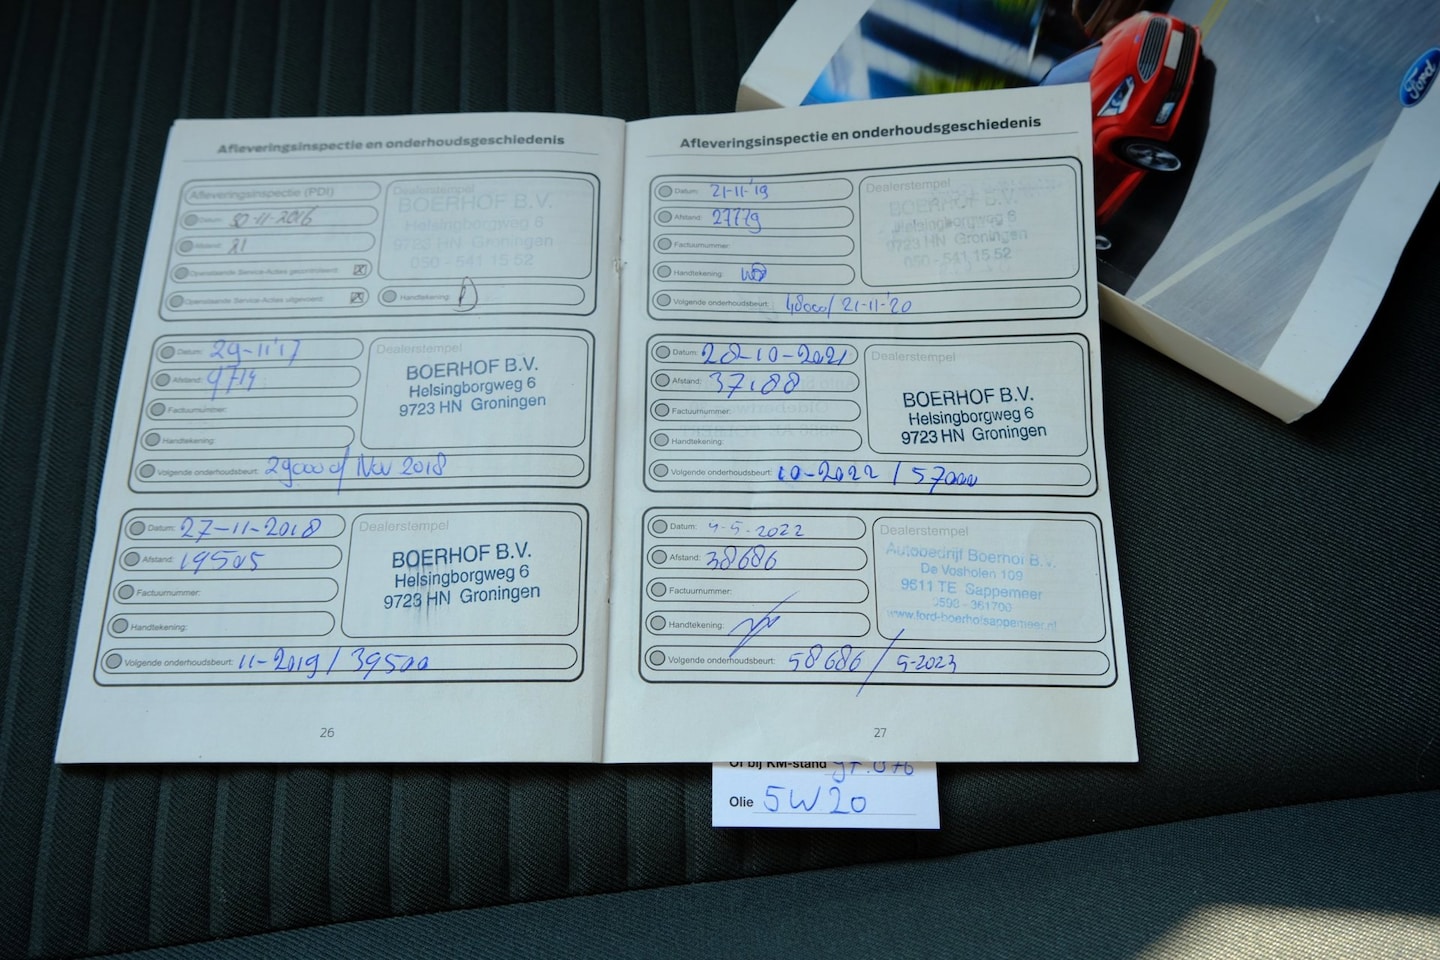 Afleveringsinspectie en onderhoudsgeschiedenis
Afleveringsinspectie (PDI)
Datum: 30-11-2016
Afstand: 21
Openstaande Service-Acties gecontroleerd:
Openstaande Service-Acties uitgevoerd:
Handtekening:
Dealerstempel
BOERHOF B.V.
Helsingborgweg 6
9723 HN Groningen
050 - 541 15 52
Datum: 29-11'17
Afstand: 9714
Factuurnummer:
Handtekening:
Volgende onderhoudsbeurt: 29000 / Nov 2018
Dealerstempel
BOERHOF B.V.
Helsingborgweg 6
9723 HN Groningen
Datum: 27-11-2018
Afstand: 19505
Factuurnummer:
Handtekening:
Volgende onderhoudsbeurt: 11-2019 / 39500
Dealerstempel
BOERHOF B.V.
Helsingborgweg 6
9723 HN Groningen
26
Afleveringsinspectie en onderhoudsgeschiedenis
Datum: 21-11-'19
Afstand: 27779
Factuurnummer:
Handtekening:
Volgende onderhoudsbeurt: 48000/ 21-11-'20
Dealerstempel
BOERHOF B.V.
Helsingborgweg 6
9723 HN Groningen
050 - 541 15 52
Datum: 28-10-2021
Afstand: 37188
Factuurnummer:
Handtekening:
Volgende onderhoudsbeurt: 10-2022 / 57000
Dealerstempel
BOERHOF B.V.
Helsingborgweg 6
9723 HN Groningen
Datum: 4-5-2022
Afstand: 38686
Factuurnummer:
Handtekening:
Volgende onderhoudsbeurt: 58686 / 5-2023
Dealerstempel
Autobedrijf Boerhof B.V.
De Vosholen 109
9611 TE Sappemeer
0598 - 361700
www.ford-boerhofsappemeer.nl
27
Of bij KM-stand
Olie 5W20
Ford